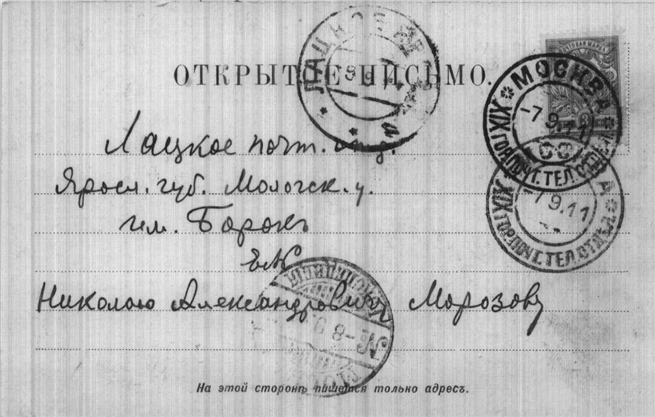 ОТКРЫТОЕ ПИСЬМО.
МОСКВА
-7.9.11
XIX ГОР.ПОЧТ.ТЕЛ.ОТДѢЛ.
-7.9.11
XIX ГОР.ПОЧТ.ТЕЛ.ОТДѢЛ.
Лацкое почт. отд.
Яросл. губ. Мологск. у.
им. Борокъ
ЕВ
Николаю Александровичу Морозову
На этой сторонѣ пишется только адресъ.